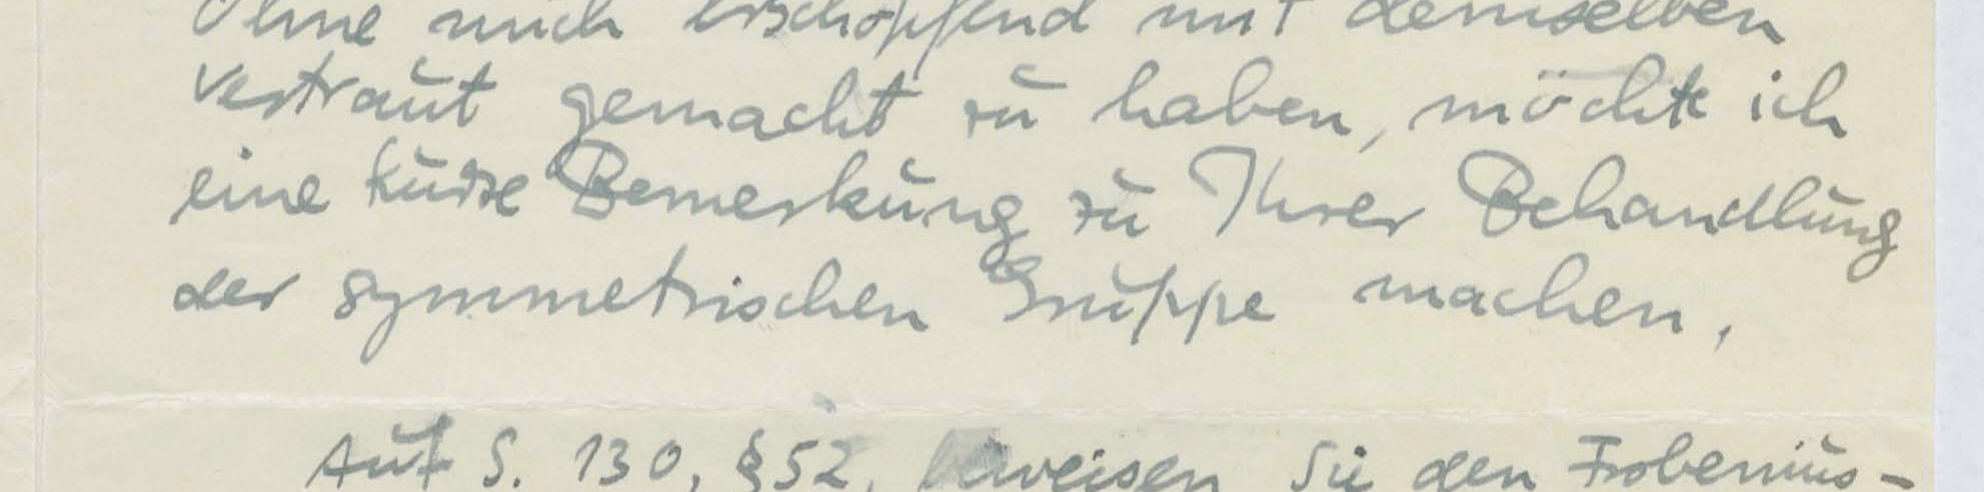 Ohne mich erschöpfend mit demselben
vertraut gemacht zu haben, möchte ich
eine kurze Bemerkung zu Ihrer Behandlung
der symmetrischen Gruppe machen.
Auf S. 130, §52, beweisen Sie den Frobenius-